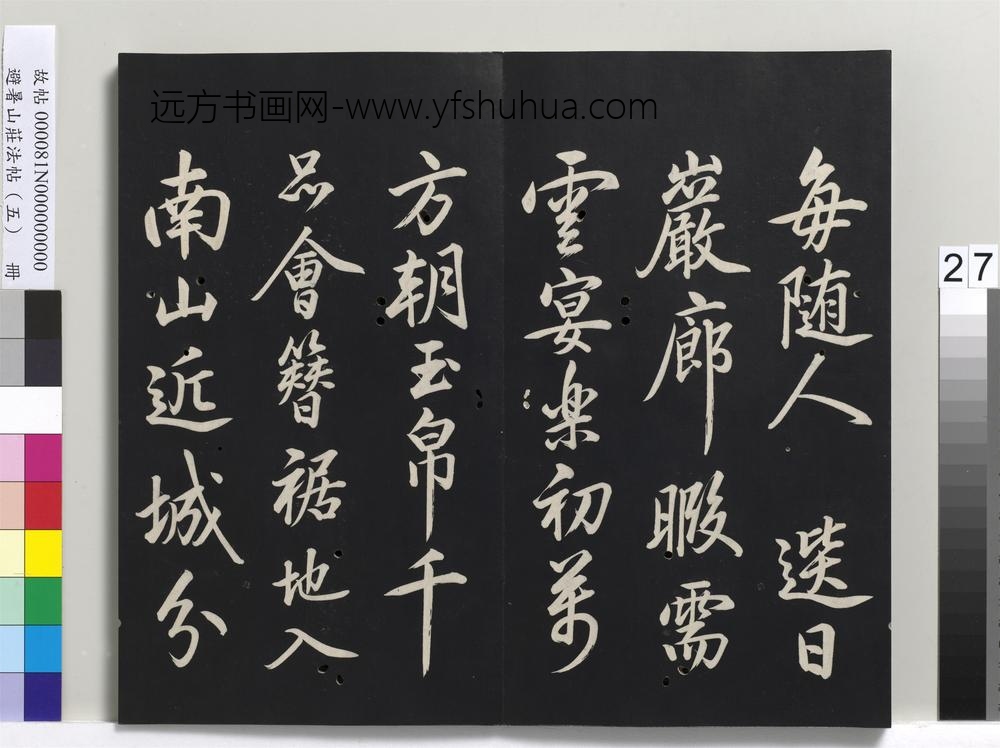 远方书画网-www.yfshuhua.com
每随人 选日
巖廊暇需
雲宴樂初萬
方朝玉帛千
品會簪裾地入
南山近城分
故帖 000081N000000000
避暑山莊法帖（五） 冊
27